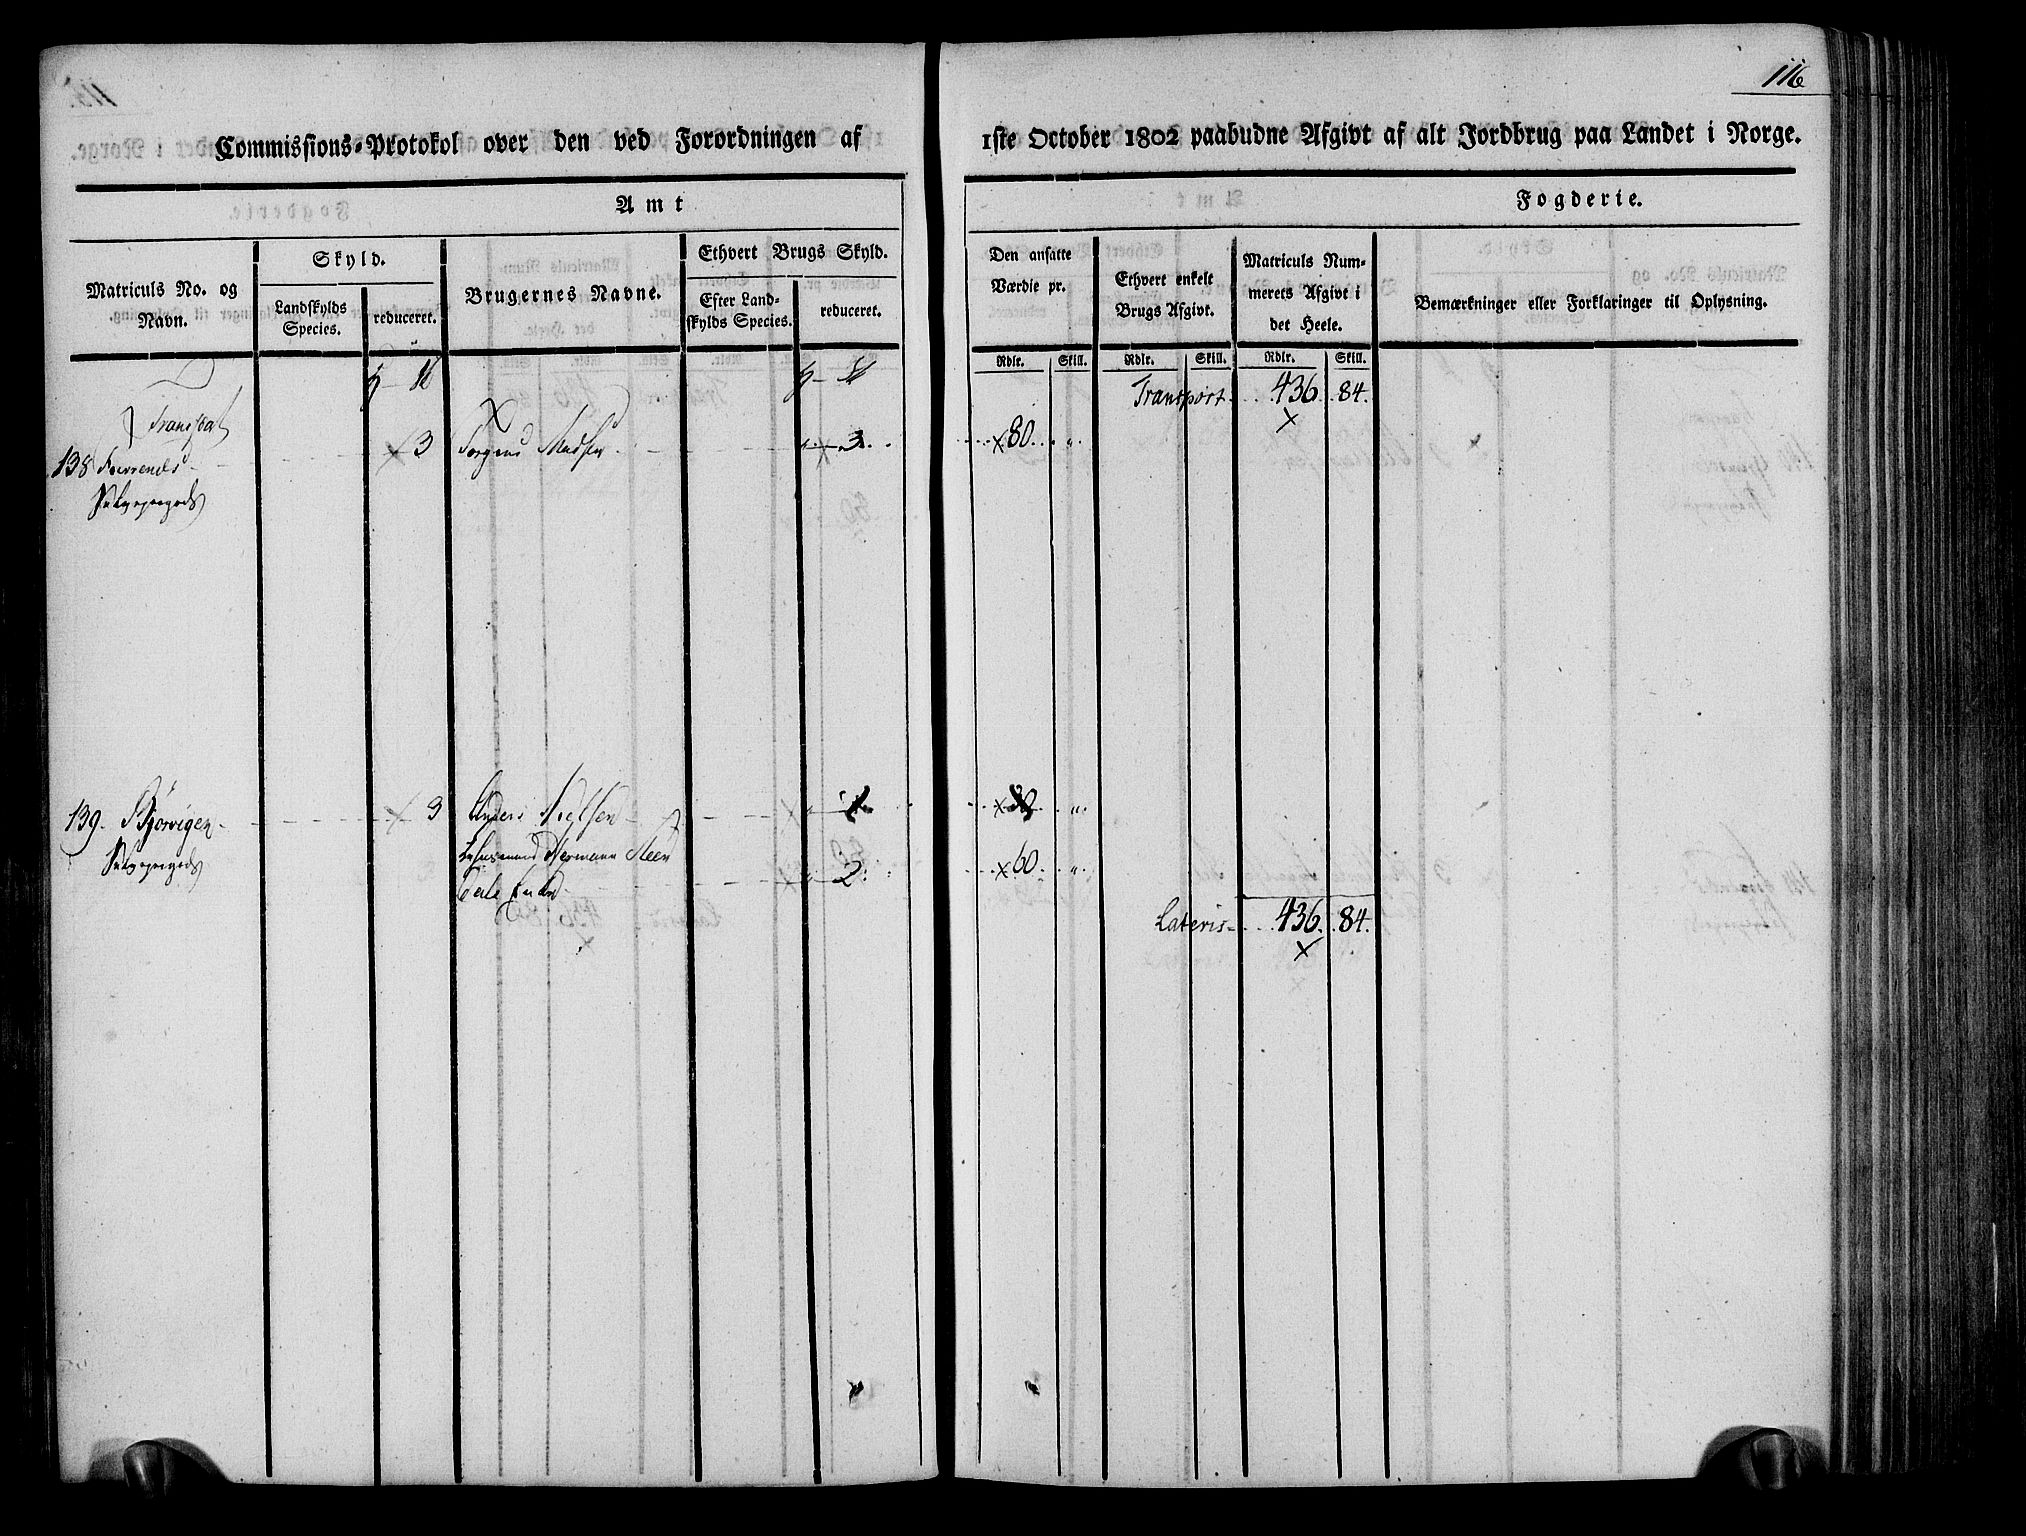 116
Commissions-Protokol over den ved Forordningen af 1ste October 1802 paabudne Afgivt af alt Jordbrug paa Landet i Norge.
Amt Fogderie.
Matriculs No. og Navn.
Skyld.
Landskylds Species.
reduceret.
Brugernes Navne.
Ethvert Brugs Skyld.
Efter Landskylds Species.
reduceret.
Den ansatte Værdie pr.
Rdlr. Skill.
Ethvert enkelt Brugs Afgivt.
Rdlr. Skill.
Matriculs Nummerets Afgivt i det Heele.
Rdlr. Skill.
Bemærkninger eller Forklaringer til Oplysning.
Transport 436 84.
138 3 Madsen 3 80 "
139. Bjørvigen 3 Anders Nielsen "
Hermann Steen 2 60 "
Lateris 436. 84.